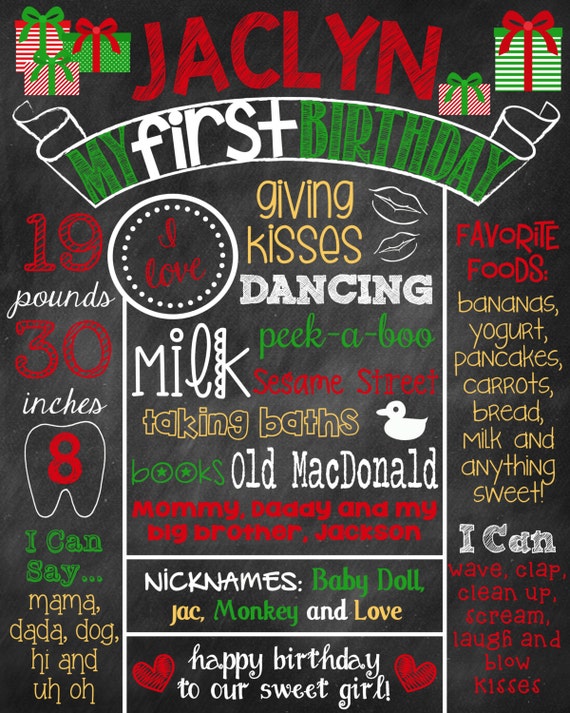 JACLYN
MY first BIRTHDAY
19
pounds
30
inches
8
I Can
Say...
mama,
dada, dog,
hi and
uh oh
I
love
giving
kisses
DANCING
peek-a-boo
Milk
Sesame Street
taking baths
books Old MacDonald
Mommy, Daday and my
big brother, Jackson
NICKNAMES: Baby Doll,
Jac, Monkey and Love
happy birthday
to our sweet girl!
FAVORITE
FOODS:
bananas,
yogurt,
pancakes,
carrots,
bread,
milk and
anything
sweet!
I Can
wave, clap,
clean up,
scream,
laugh and
blow
kisses